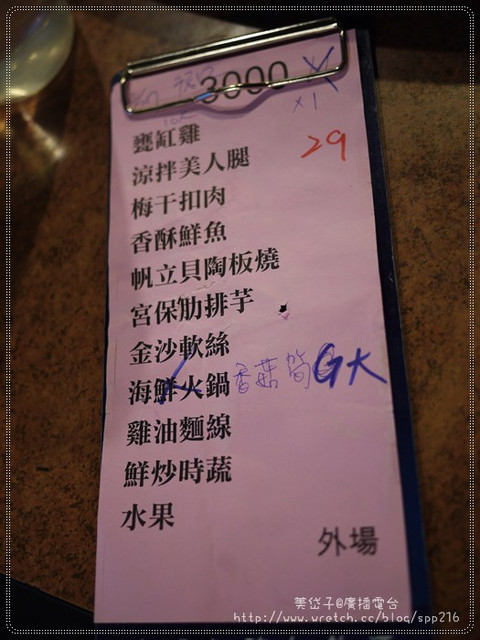 3000
x1
29
甕缸雞
涼拌美人腿
梅干扣肉
香酥鮮魚
帆立貝陶板燒
宮保肋排芋
金沙軟絲
海鮮火鍋 香菇 GK
雞油麵線
鮮炒時蔬
水果
外場
美岱子@廣播電台
http://www.wretch.cc/blog/spp216